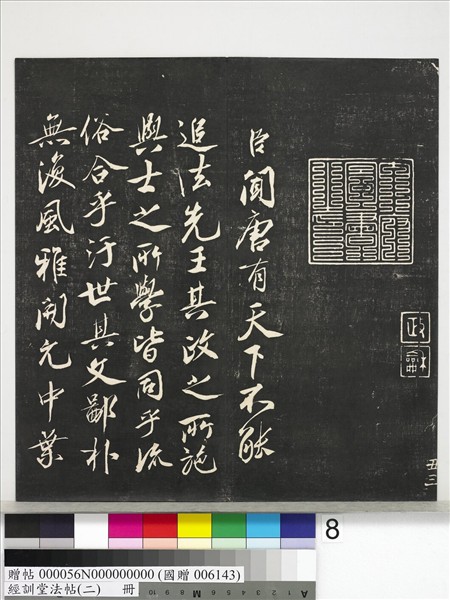 政龢
臣聞唐有天下不能
追法先王其政之所施
與士之所學皆同乎流
俗合乎汙世其文鄙朴
無復風雅開元中葉
8
贈帖 000056N000000000 (國贈 006143)
經訓堂法帖(二) 冊